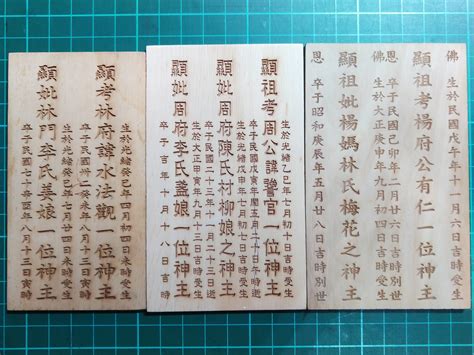 佛
生於民國戊年十一月六日吉時受生
顯祖考楊府公有仁一位神主
卒于民國卯年二月廿六日吉時別世
佛
生於大正庚年九月初四日吉時受生
顯祖妣楊媽林氏梅花之神主
恩
卒于昭和庚辰年五月廿八日吉時別世
生於光緒乙巳年七月初十日吉時受生
顯祖考周公諱官一位神主
卒于民國戊寅年閏五月十日午時逝
生於光緒戊申年七月初八日吉時受生
顯妣周府陳氏村柳娘之神主
卒于民國二十九年二月十三日吉時逝
生於大正甲寅年九月二十三日吉時受生
顯妣周府李氏蓋娘一位神主
卒于吉年十月十八日吉時
生於光緒癸巳年四月初四日未時受生
顯考林府諱水法觀一位神主
卒于民國癸未年八月十三日時
生於光緒癸年七月廿四日時受生
顯妣林門李氏娘一位神主
卒于年八月十三日寅時